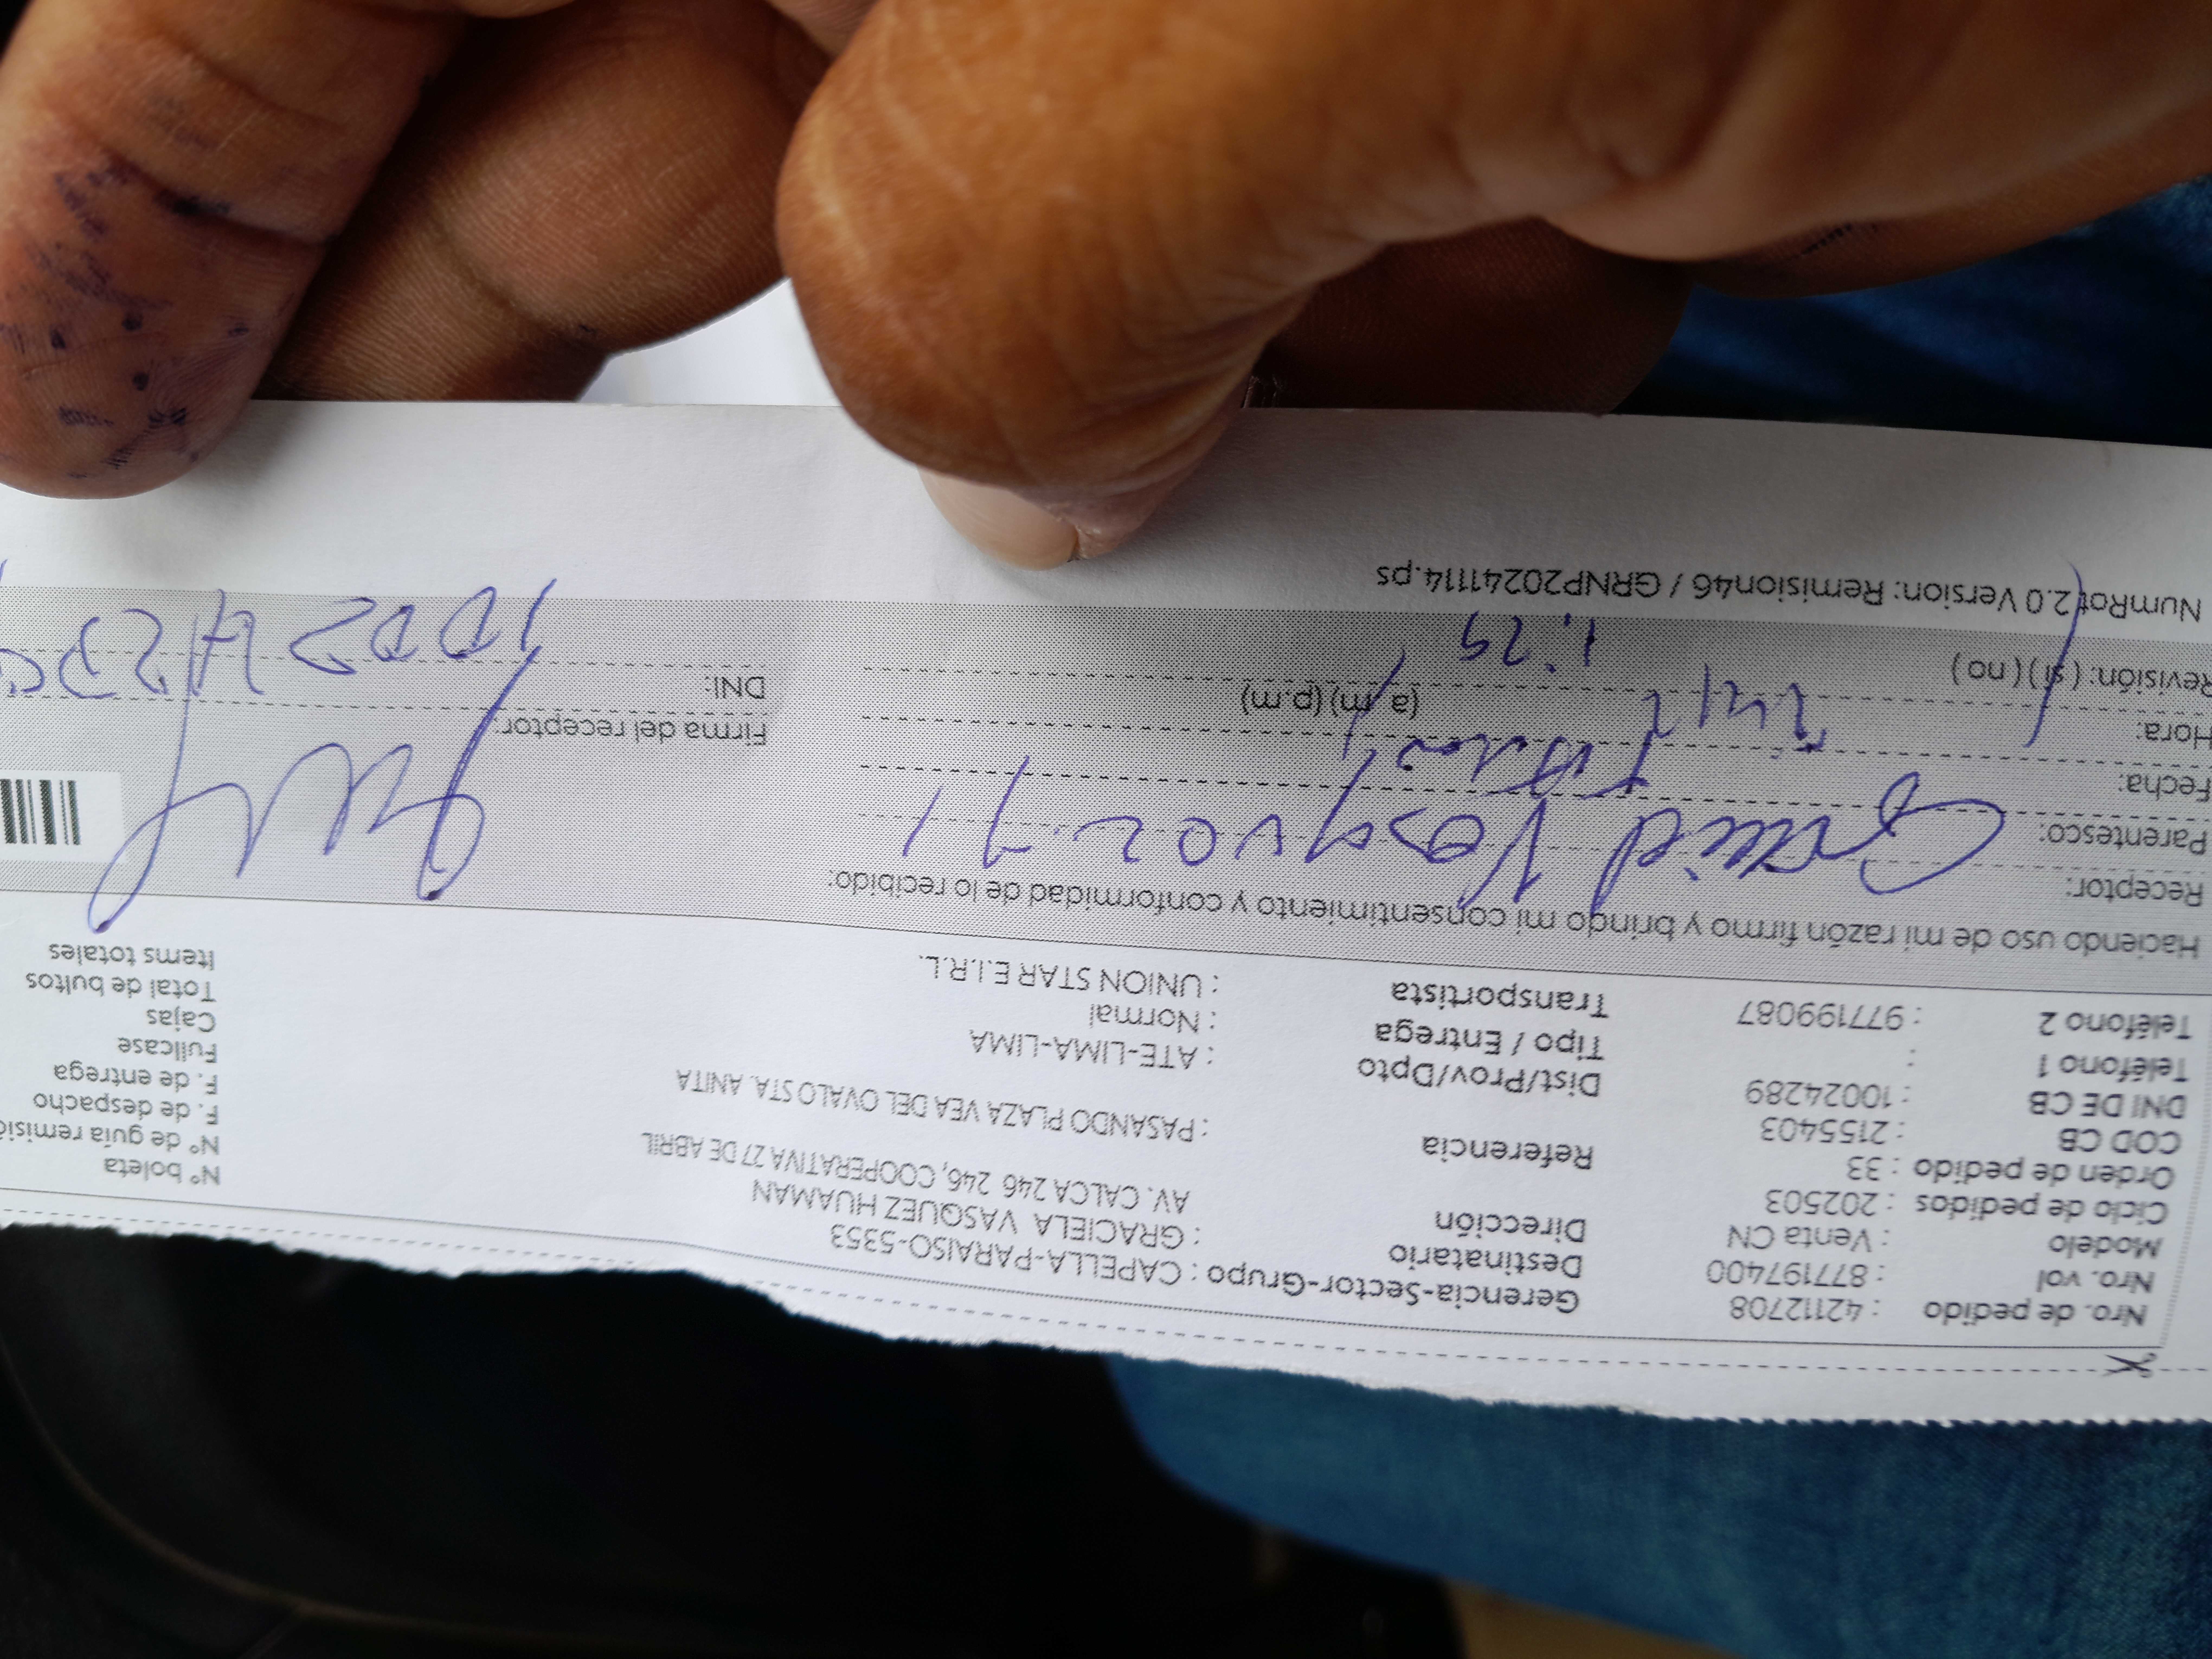 Nro. de pedido : 42112708 Gerencia-Sector-Grupo : CAPELLA-PARAISO-5353 N° boleta
Nro. vol : 877197400 Destinatario : GRACIELA VASQUEZ HUAMAN N° de guía remisió
Modelo : Venta CN Dirección AV. CALCA 246 246, COOPERATIVA 27 DE ABRIL F. de despacho
Ciclo de pedidos : 202503 F. de entrega
Orden de pedido : 33 Referencia : PASANDO PLAZA VEA DEL OVALO STA. ANITA Fullcase
COD CB : 2155403 Cajas
DNI DE CB : 10024289 Dist/Prov/Dpto : ATE-LIMA-LIMA Total de bultos
Teléfono 1 : Tipo / Entrega : Normal Items totales
Teléfono 2 : 977199087 Transportista : UNION STAR E.I.R.L.
Haciendo uso de mi razón firmo y bringo mi consentimiento y conformidad de lo recibido:
Receptor:
Parentesco:
Fecha: Firma del receptor:
Hora: (a.m) (p.m) 1:29 DNI:
Revisión: ( sí ) ( no )
NumRot 2.0 Version: Remision46 / GRNP20241114.ps